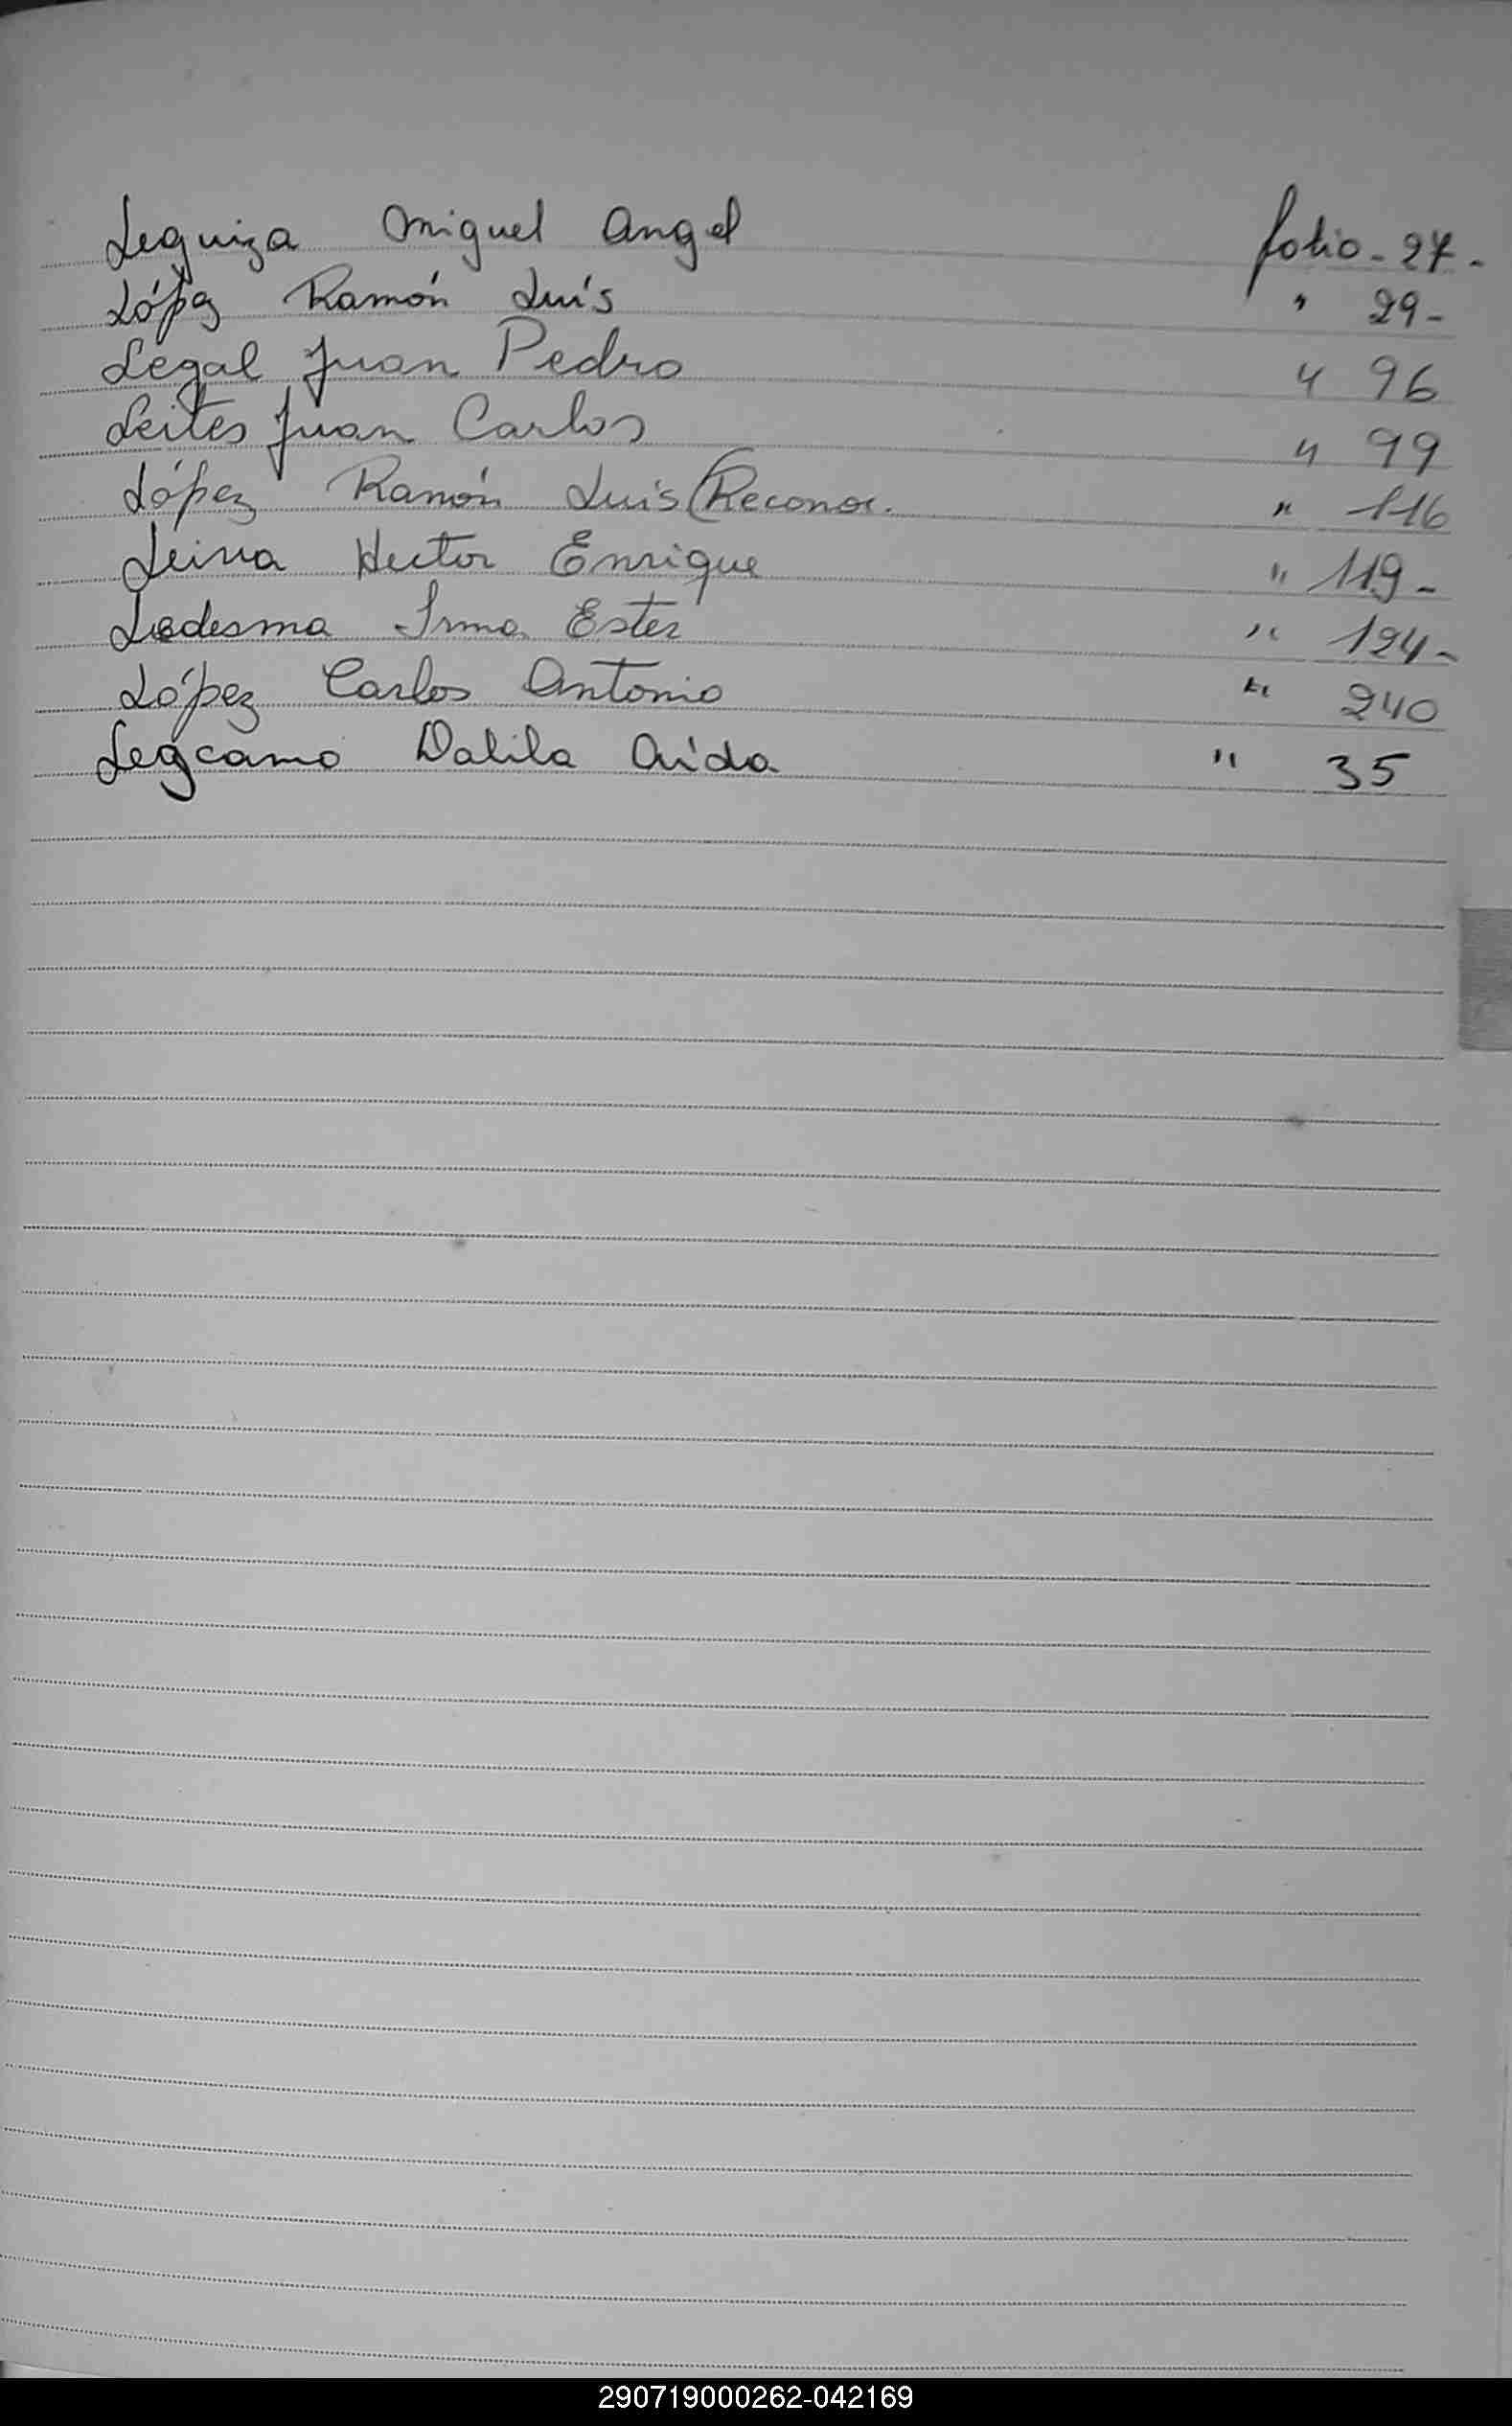 Leguiza Miguel Angel folio - 27 -
López Ramón Luís " 29 -
Legal Juan Pedro " 96
Leites Juan Carlos " 99
López Ramón Luís (Reconoc. " 116
Leiva Hector Enrique " 119 -
Ledesma Irma Ester " 124 -
López Carlos Antonio " 240
Legcamo Dalila Aída " 35
290719000262-042169